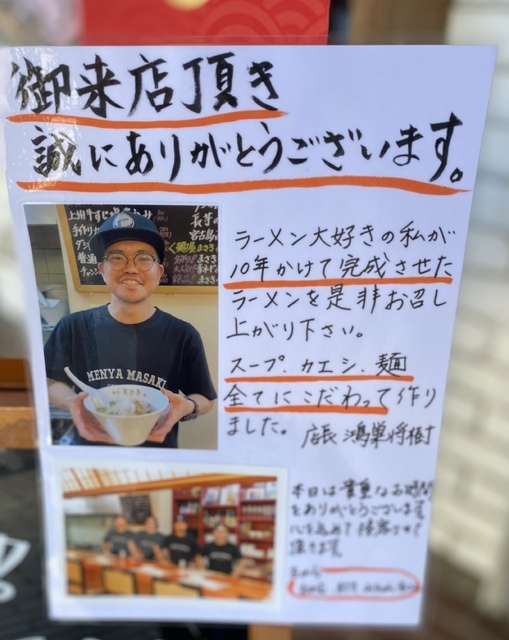 御来店頂き
誠にありがとうございます。
ラーメン大好きの私が
10年かけて完成させた
ラーメンを是非お召し
上がり下さい。
スープ、カエシ、麺
全てにこだわって作り
ました。店長 鴻巣将樹
MENYA MASAKI
本日は貴重なお時間
をありがとうございます
心を込めて接客させて
頂きます